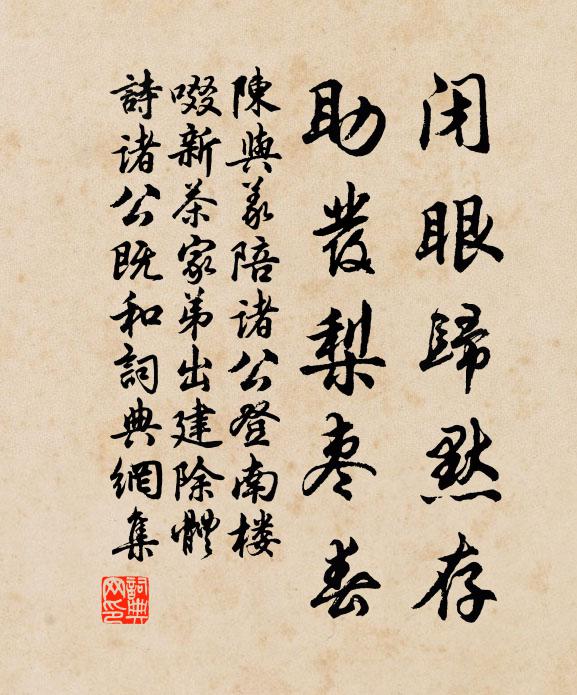 闭眼歸默存
助發梨枣春
陳與義陪诸公登南楼
啜新茶家弟出建除體
詩诸公既和詞典網集
詞典网印